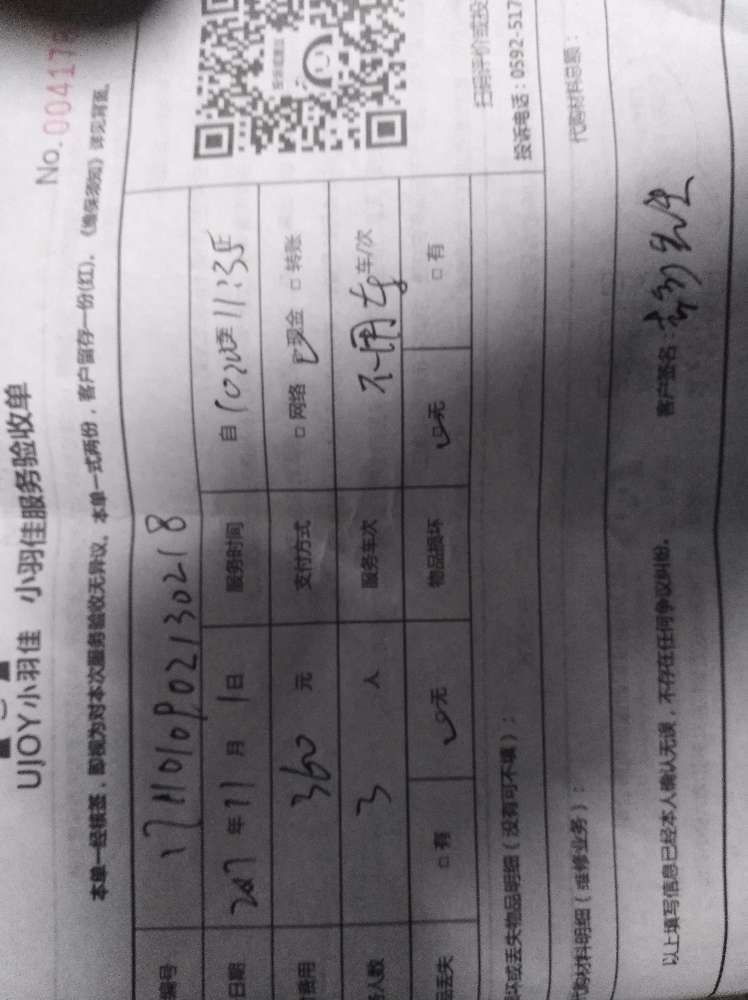 UJOY小羽佳 小羽佳服务验收单
No. 004178
本单一经核签，即视为对本次服务验收无异议。本单一式两份，客户留存一份(红)。《维保须知》详见背面。
编号
日期 2017 年 11 月 1 日 服务时间 自 至 11:35
费用 360 元 支付方式 □ 网络 ☑ 现金 □ 转账
人数 3 人 服务车次 不用车 车/次
丢失 □ 有 ☑ 无 物品损坏 ☑ 无 □ 有
扫码评价或投
投诉电话：0592-517
坏或丢失物品明细（没有可不填）：
代购材料明细（维修业务）： 代购材料总额：
以上填写信息已经本人确认无误，不存在任何争议纠纷。 客户签名：